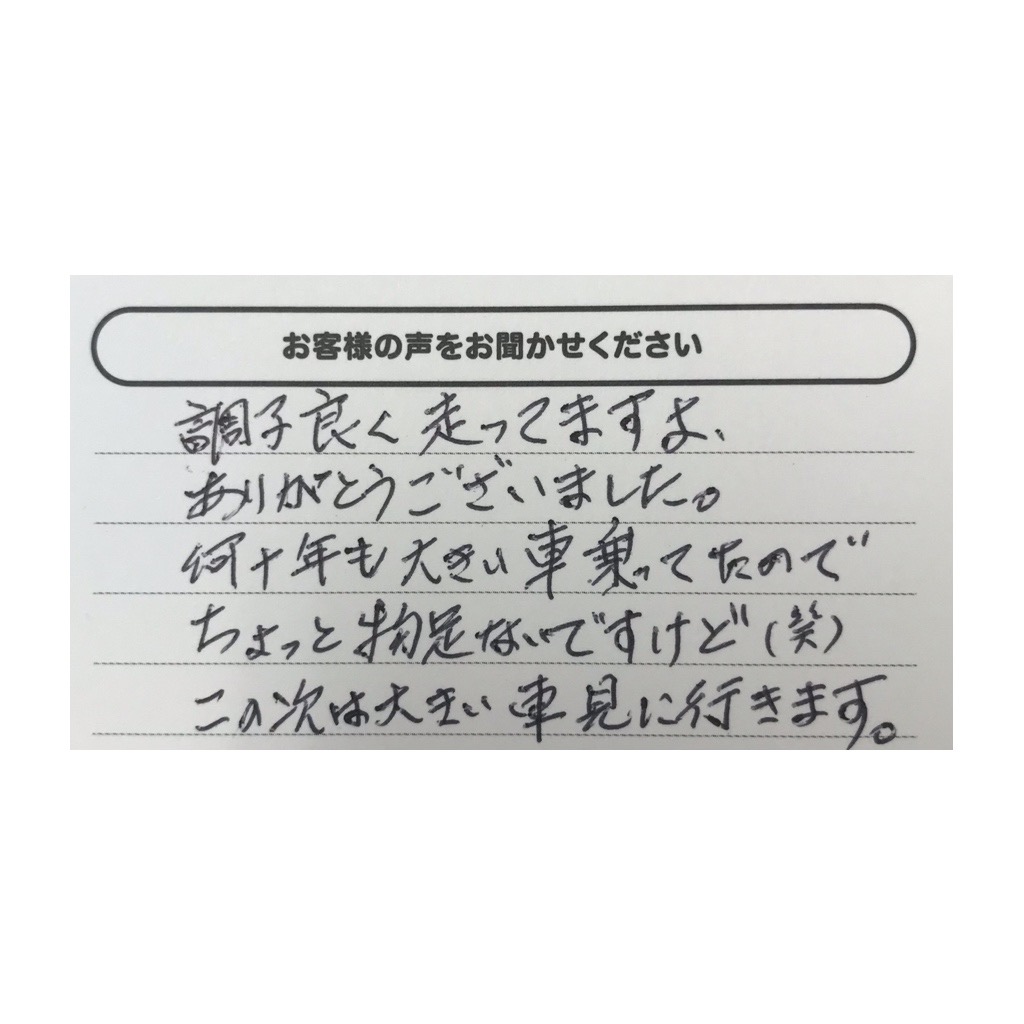 お客様の声をお聞かせください
調子良く走ってますよ、
ありがとうございました。
何十年も大きい車乗ってたので
ちょっと物足ないですけど(笑)
この次は大きい車見に行きます。